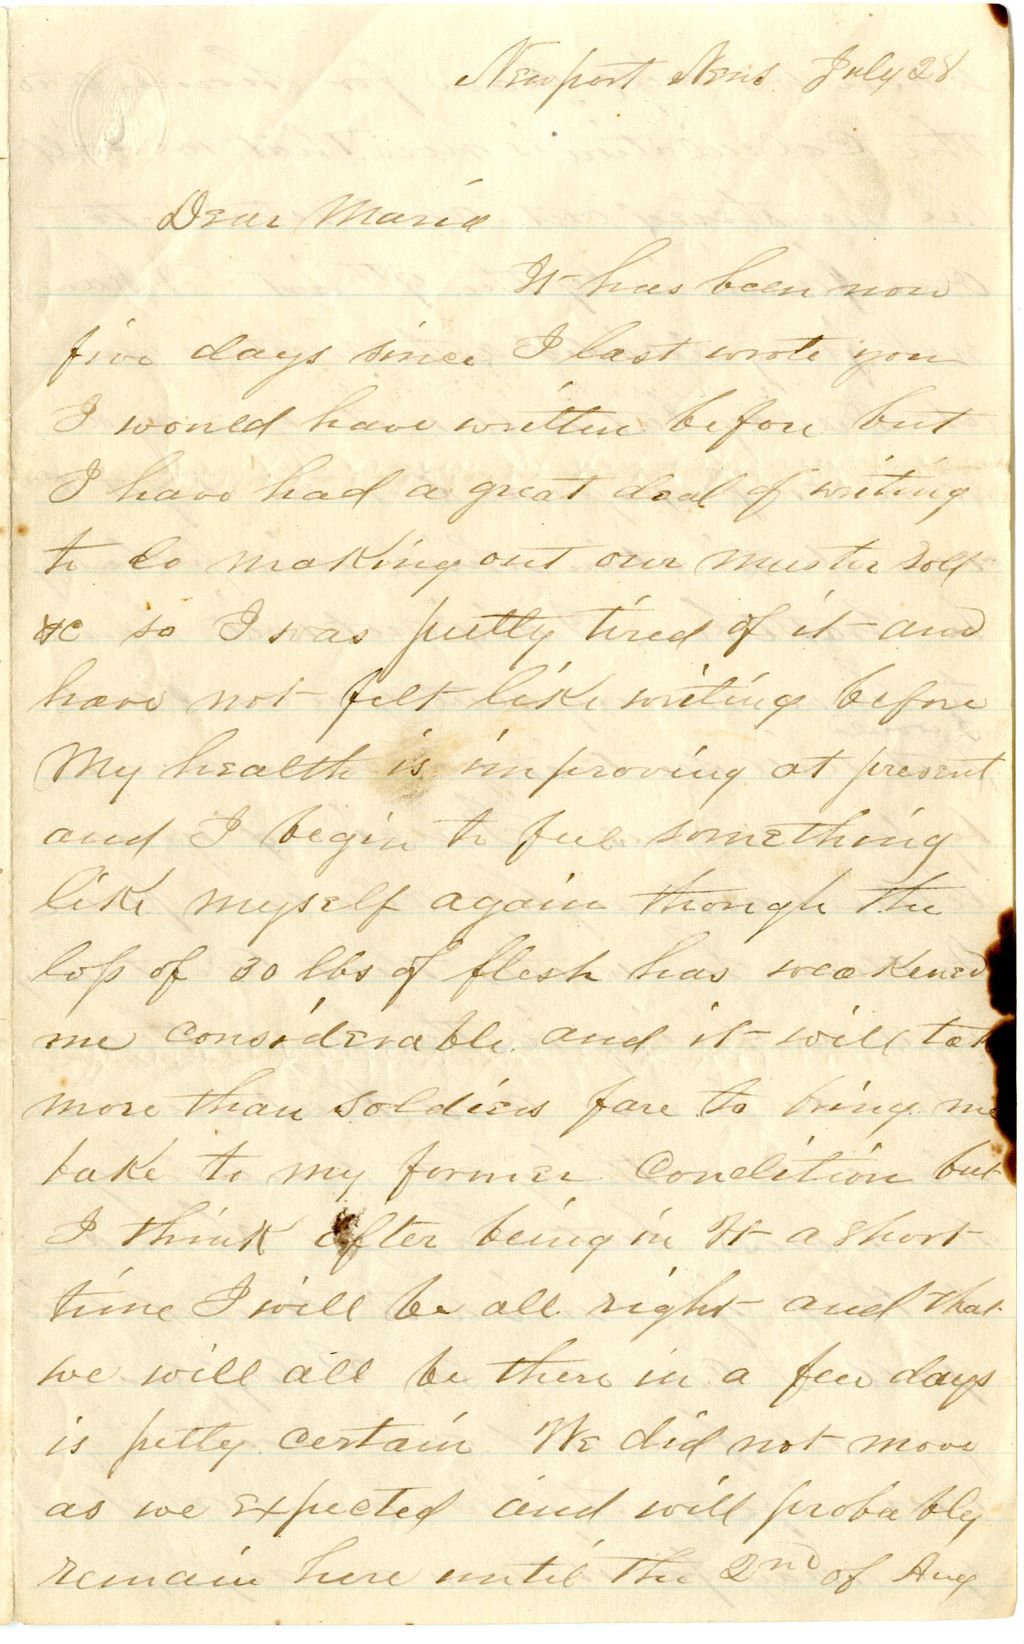 Newport News July 28
Dear Maria
It has been now
five days since I last wrote you
I would have written before but
I have had a great deal of writing
to do making out our muster roll
&c so I was pretty tired of it and
have not felt like writing before
My health is improving at present
and I begin to feel something
like myself again though the
loss of 30 lbs of flesh has weakened
me considerable and it will take
more than soldiers fare to bring me
bake to my former condition but
I think after being in It a short
time I will be all right and that
we will all be there in a few days
is petty certain We did not move
as we expected and will probably
remain here until the 2nd of Aug